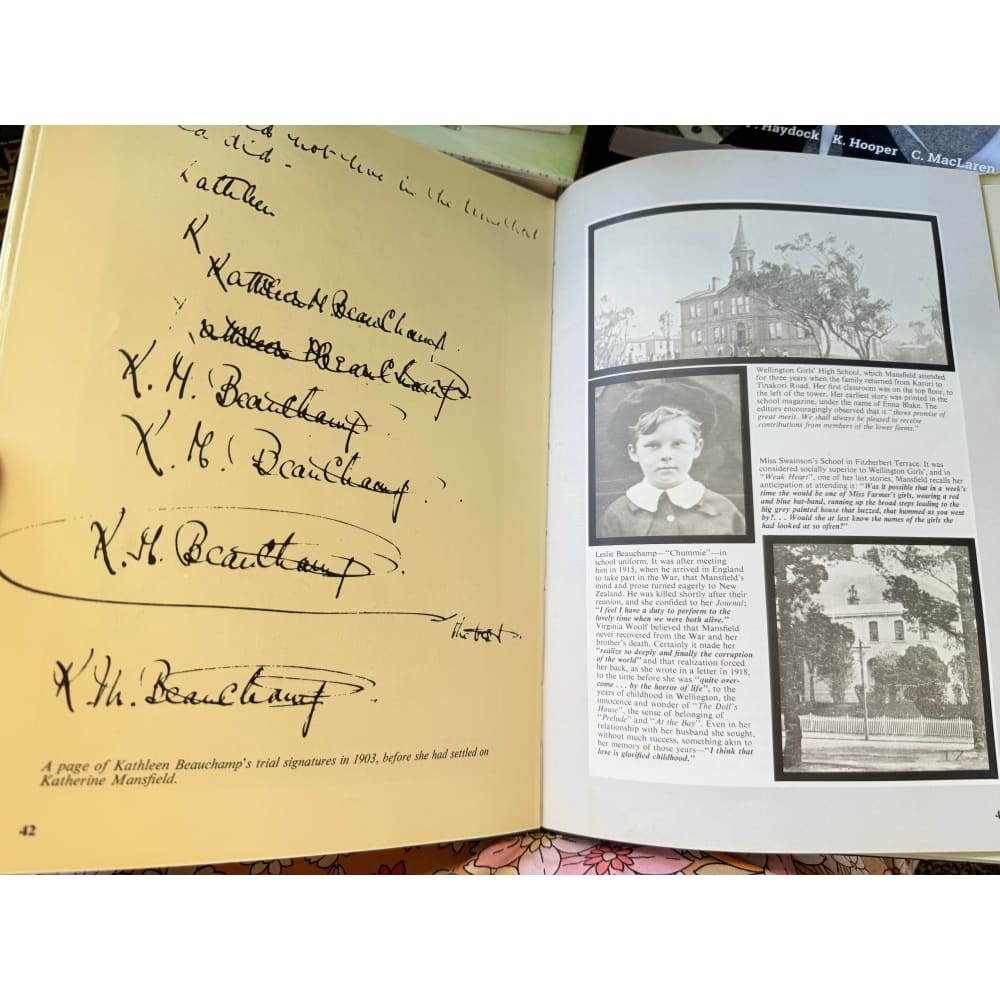 Haydock K. Hooper C. MacLaren
did not live in the
did -
Kathleen
K
Kathleen M. Beauchamp.
Kathleen M Beauchamp
K. M. Beauchamp ?
K. M. Beauchamp ?.
K. M. Beauchamp.
the best.
K. M. Beauchamp.
A page of Kathleen Beauchamp's trial signatures in 1903, before she had settled on
Katherine Mansfield.
42
Wellington Girls' High School, which Mansfield attended
for three years when the family returned from Karori to
Tinakori Road. Her first classroom was on the top floor, to
the left of the tower. Her earliest story was printed in the
school magazine, under the name of Enna Blake. The
editors encouragingly observed that it "shows promise of
great merit. We shall always be pleased to receive
contributions from members of the lower forms."
Miss Swainson's School in Fitzherbert Terrace. It was
considered socially superior to Wellington Girls', and in
"Weak Heart", one of her last stories, Mansfield recalls her
anticipation at attending it: "Was it possible that in a week's
time she would be one of Miss Farmer's girls, wearing a red
and blue hat-band, running up the broad steps leading to the
big grey painted house that buzzed, that hummed as you went
by?. . . Would she at last know the names of the girls she
had looked at so often?"
Leslie Beauchamp—"Chummie"—in
school uniform. It was after meeting
him in 1915, when he arrived in England
to take part in the War, that Mansfield's
mind and prose turned eagerly to New
Zealand. He was killed shortly after their
reunion, and she confided to her Journal:
"I feel I have a duty to perform to the
lovely time when we were both alive."
Virginia Woolf believed that Mansfield
never recovered from the War and her
brother's death. Certainly it made her
"realize so deeply and finally the corruption
of the world" and that realization forced
her back, as she wrote in a letter in 1918,
to the time before she was "quite over-
come . . . by the horror of life", to the
years of childhood in Wellington, the
innocence and wonder of "The Doll's
House", the sense of belonging of
"Prelude" and "At the Bay". Even in her
relationship with her husband she sought,
without much success, something akin to
her memory of those years—"I think that
love is glorified childhood."